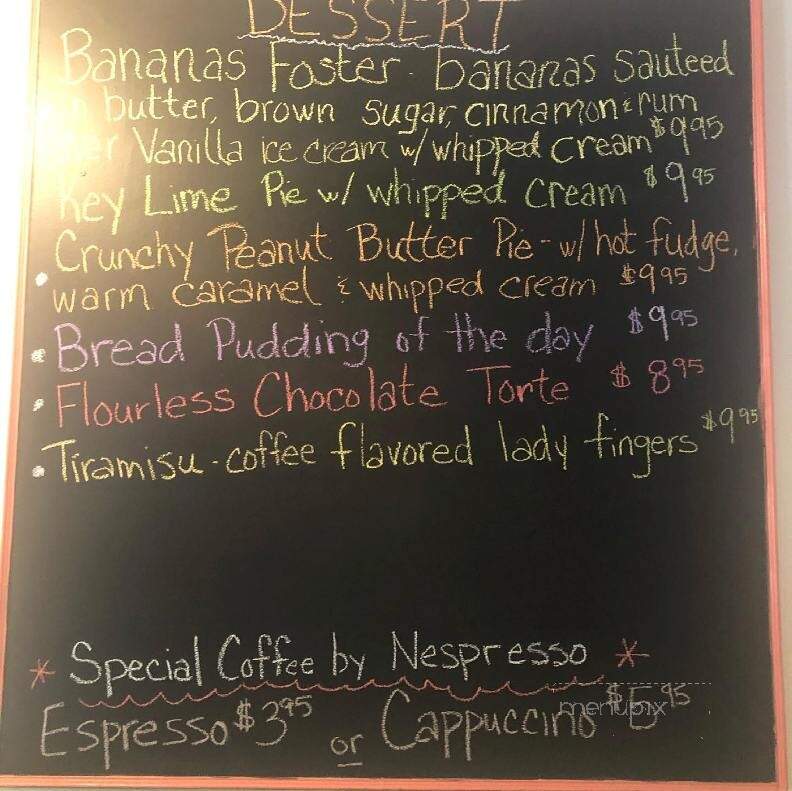 DESSERT
Bananas Foster - bananas sauteed
butter, brown sugar, cinnamon & rum
Vanilla ice cream w/ whipped cream $9.95
Key Lime Pie w/ whipped cream $9.95
Crunchy Peanut Butter Pie - w/ hot fudge,
• warm caramel & whipped cream $9.95
• Bread Pudding of the day $9.95
• Flourless Chocolate Torte $8.95
• Tiramisu - coffee flavored lady fingers $9.95
* Special Coffee by Nespresso *
Espresso $3.95 or Cappuccino $5.95
menupix